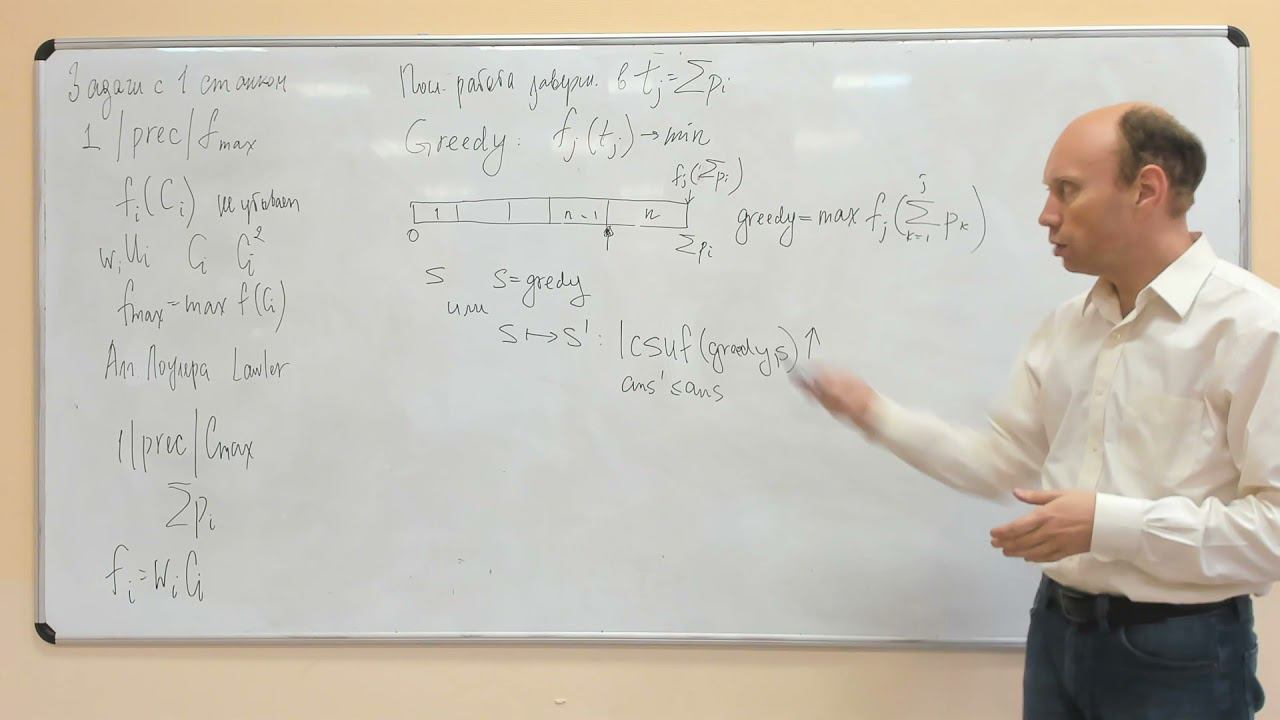 Задачи с 1 станком
1 | prec | f_max
f_i(C_i) не убывает
w_i U_i   C_i   C_i^2
f_max = max f(C_i)
Алг Лоулера Lawler
1 | prec | C_max
∑ p_i
f_i = w_i C_i
Посл. работа заверш. в t_j = ∑ p_i
Greedy: f_j(t_j) → min
f_j(∑ p_i)
1   n-1   n
0   ∑ p_i
greedy = max f_j(∑_{k=1}^{j} p_k)
S   S = gredy
или
S ↦ S' : lcsuf(greedy, s) ↑
ans' ≤ ans